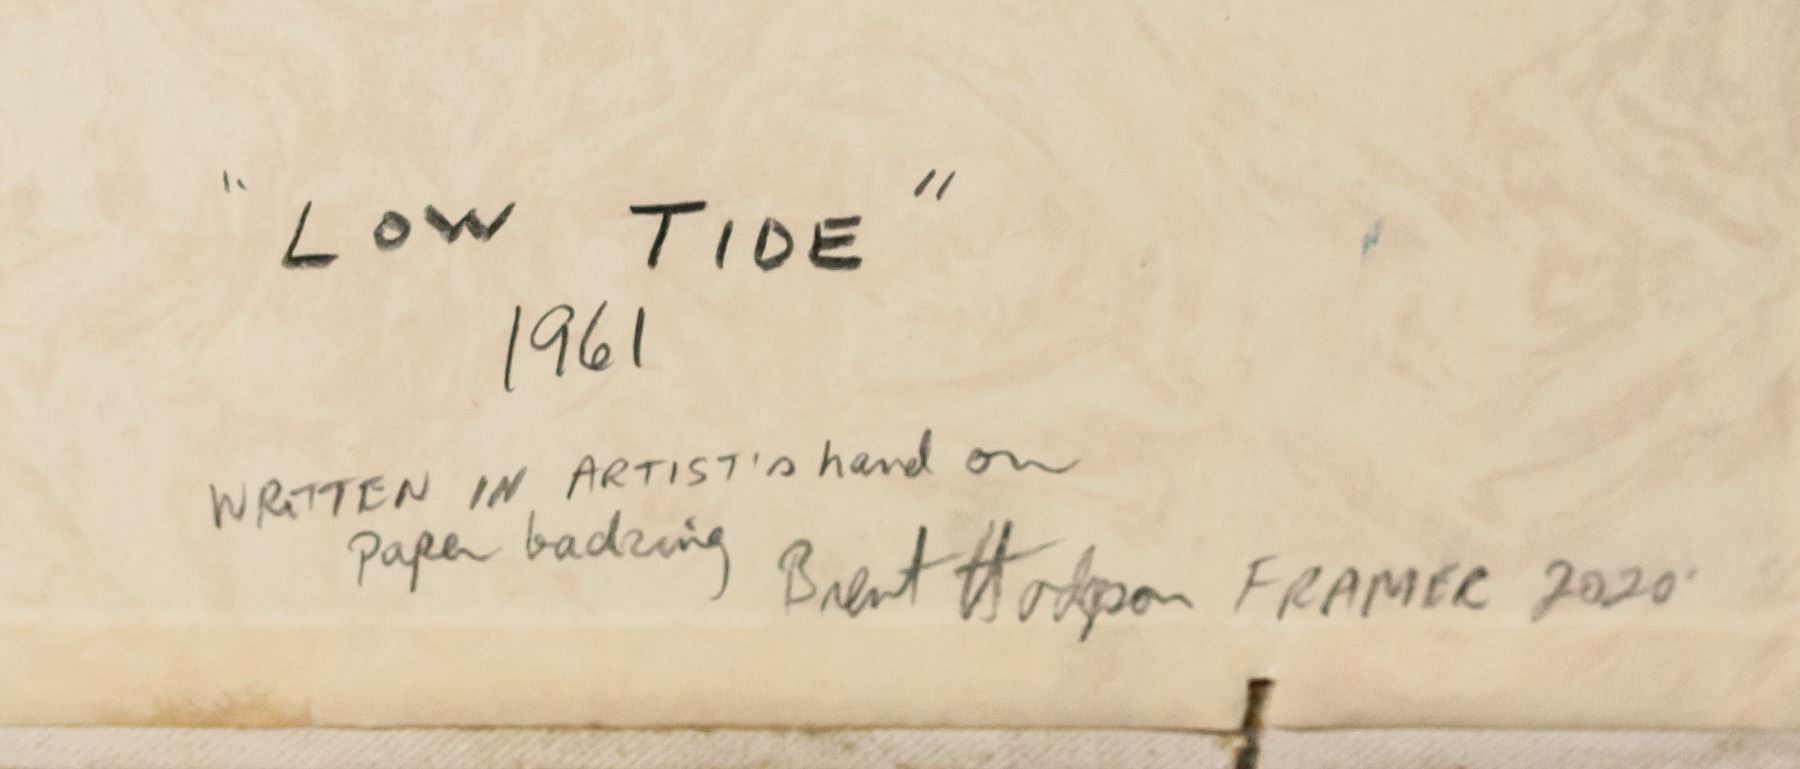 "LOW TIDE"
1961
WRITTEN IN ARTIST's hand on
paper backing Brent Hodgson FRAMER 2020